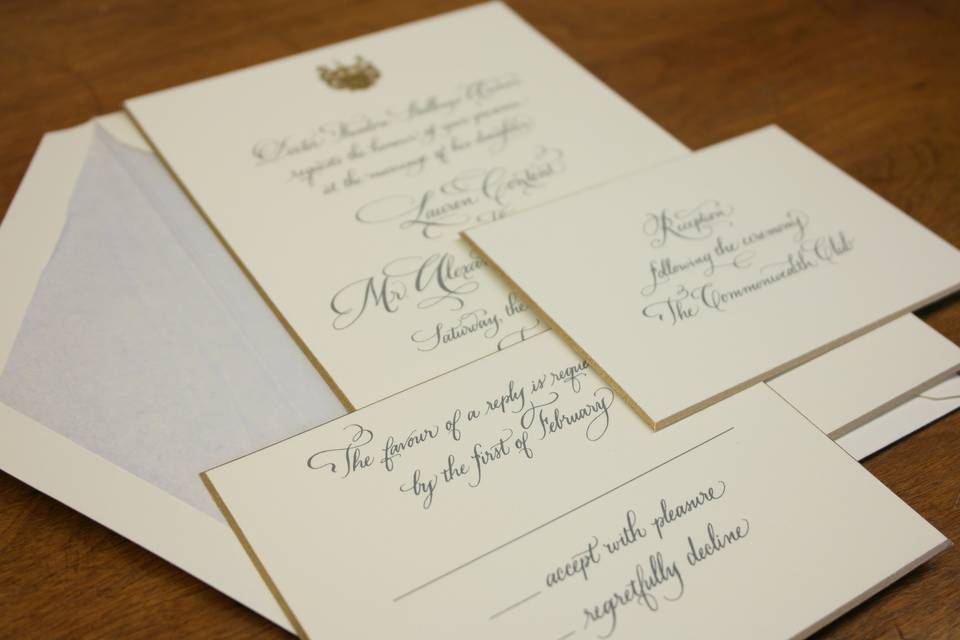 requests the honour of your presence
at the marriage of his daughter
Lauren
Mr. Alexa
Saturday, the
Reception
following the ceremony
The Commonwealth Club
The favour of a reply is reque
by the first of February
accept with pleasure
regretfully decline